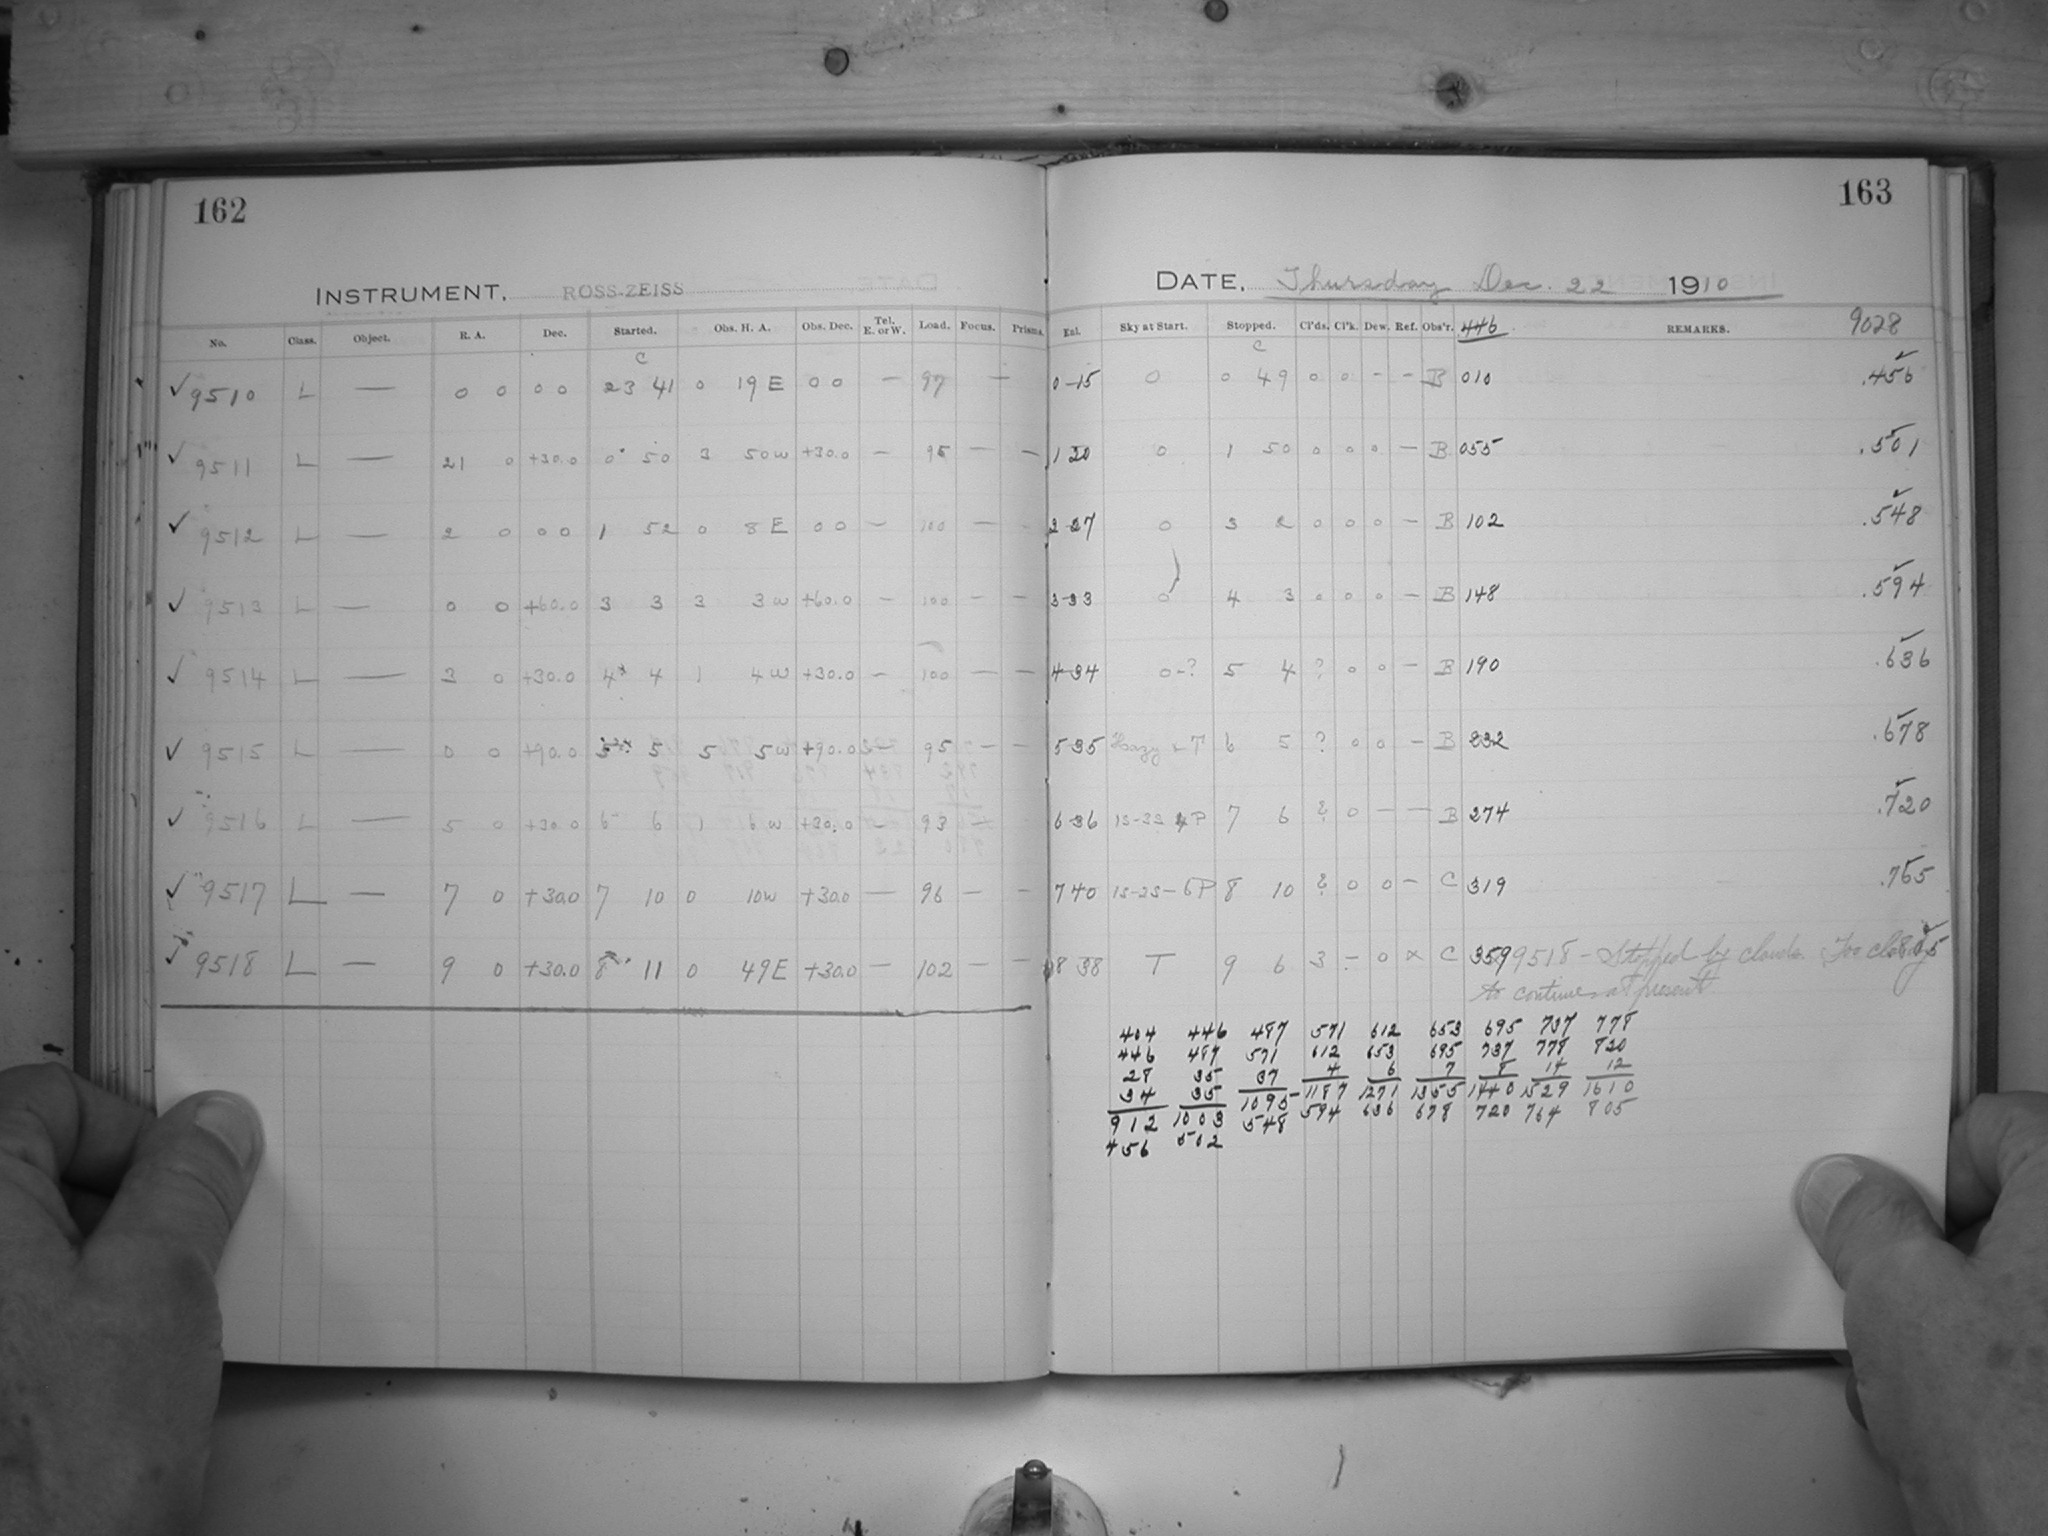 162
INSTRUMENT, ROSS-ZEISS
No. Class. Object. R. A. Dec. Started. Obs. H. A. Obs. Dec. Tel. E. or W. Load. Focus. Prisms.
C
✓ 9510 L — 0 0 0 0 23 41 0 19 E 0 0 — 97 —
✓ 9511 L — 21 0 +30.0 0 50 3 50 w +30.0 — 95 — —
✓ 9512 L — 2 0 0 0 1 52 0 8 E 0 0 — 100 —
✓ 9513 L — 0 0 +60.0 3 3 3 3 w +60.0 — 100 — —
✓ 9514 L — 3 0 +30.0 4 4 1 4 w +30.0 — 100 — —
✓ 9515 L — 0 0 +90.0 5 5 5 5 w +90.0 — 95 — —
✓ 9516 L — 5 0 +30.0 6 6 1 6 w +30.0 — 93 —
✓ 9517 L — 7 0 +30.0 7 10 0 10 w +30.0 — 96 — —
✓ 9518 L — 9 0 +30.0 8 11 0 49 E +30.0 — 102 — —
163
DATE, Thursday Dec. 22 1910
Exl. Sky at Start. Stopped. Cl'ds. Cl'k. Dew. Ref. Obs'r. 446 REMARKS. 9028
C
0-15 0 0 49 0 0 - - B 010 .456
1 20 0 1 50 0 0 0 - B 055 .501
2-27 0 3 2 0 0 0 - B 102 .548
3-33 0 4 3 0 0 0 - B 148 .594
4-34 0-? 5 4 ? 0 0 - B 190 .636
5-35 Hazy & T 6 5 ? 0 0 - B 232 .678
6-36 1S-3S 4P 7 6 ? 0 - - B 274 .720
7 40 1S-2S-6P 8 10 ? 0 0 - C 319 .765
8 38 T 9 6 3 - 0 × C 359 9518 - Stopped by clouds. Too cloudy 805
to continue at present
404 446 487 571 612 653 695 737 778
446 487 571 612 653 695 737 778 820
28 35 37 4 6 7 8 14 12
34 35 1095 1187 1271 1355 1440 1529 1610
912 1003 548 594 636 678 720 764 805
456 502